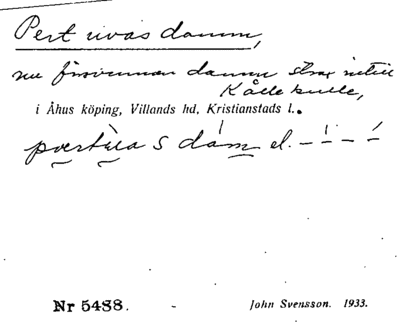 Pert uvas damm,
nu försvunnen damm strax intill
Kålle kulle,
i Åhus köping, Villands hd, Kristianstads l.
damm el. – – – –
Nr 5488. - John Svensson. 1933.